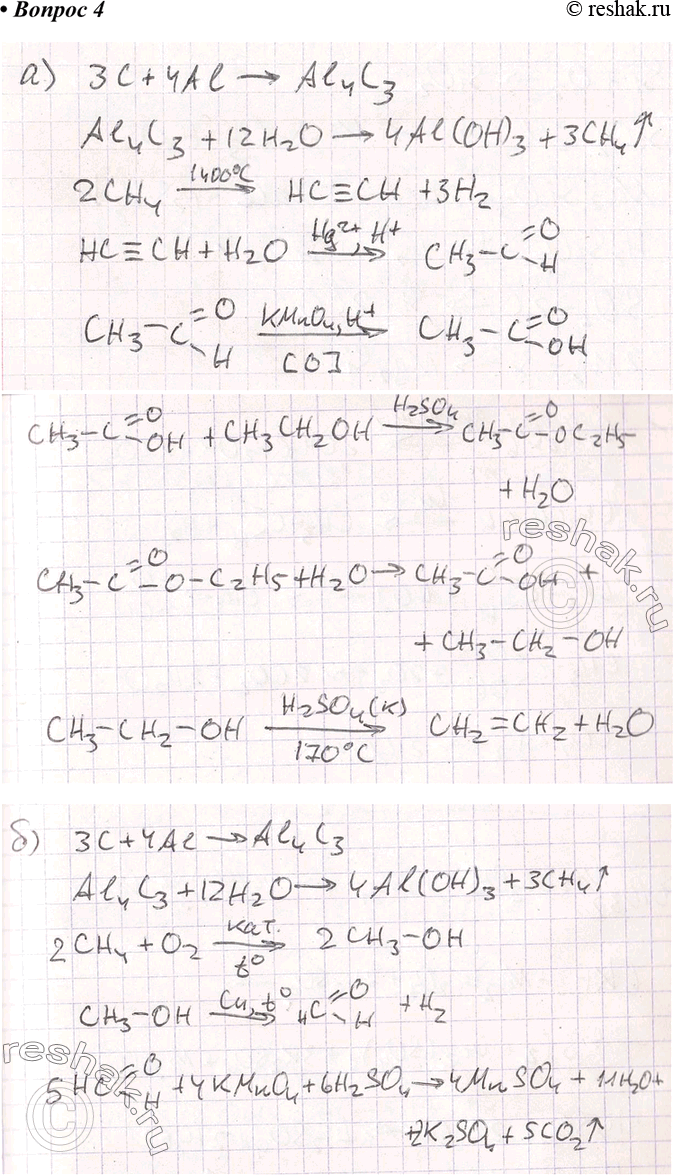 • Вопрос 4 © reshak.ru
а) 3C + 4Al → Al₄C₃
Al₄C₃ + 12H₂O → 4Al(OH)₃ + 3CH₄↑
2CH₄ 1400°C → HC≡CH + 3H₂
HC≡CH + H₂O Hg²⁺, H⁺ → CH₃-C=O H
CH₃-C=O H KMnO₄, H⁺ [O] → CH₃-C=O OH
CH₃-C=O OH + CH₃CH₂OH H₂SO₄ → CH₃-C=O -OC₂H₅
+ H₂O
CH₃-C=O -O-C₂H₅ + H₂O → CH₃-C=O OH +
+ CH₃-CH₂-OH
CH₃-CH₂-OH H₂SO₄(к) 170°C → CH₂=CH₂ + H₂O
б) 3C + 4Al → Al₄C₃
Al₄C₃ + 12H₂O → 4Al(OH)₃ + 3CH₄↑
2CH₄ + O₂ кат. t° → 2CH₃-OH
CH₃-OH Cu, t° → HC=O H + H₂
5HC=O H + 4KMnO₄ + 6H₂SO₄ → 4MnSO₄ + 11H₂O +
+2K₂SO₄ + 5CO₂↑
reshak.ru
©
reshak.ru
©